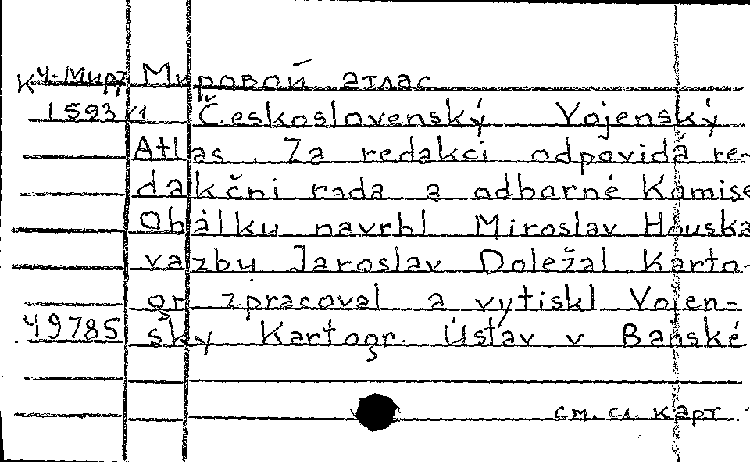 К4-Мир7 Мировой атлас
1593/1 Československý Vojenský
Atlas. Za redakci odpovidá re-
dakčni rada a odborné Komise
Obálku navrhl Miroslav Houska
vazby Jaroslav Doležal Karto-
gr. zpracoval a vytiskl Vojen-
49785 ský Kartogr. Ústav v Baňské
см. сл. карт